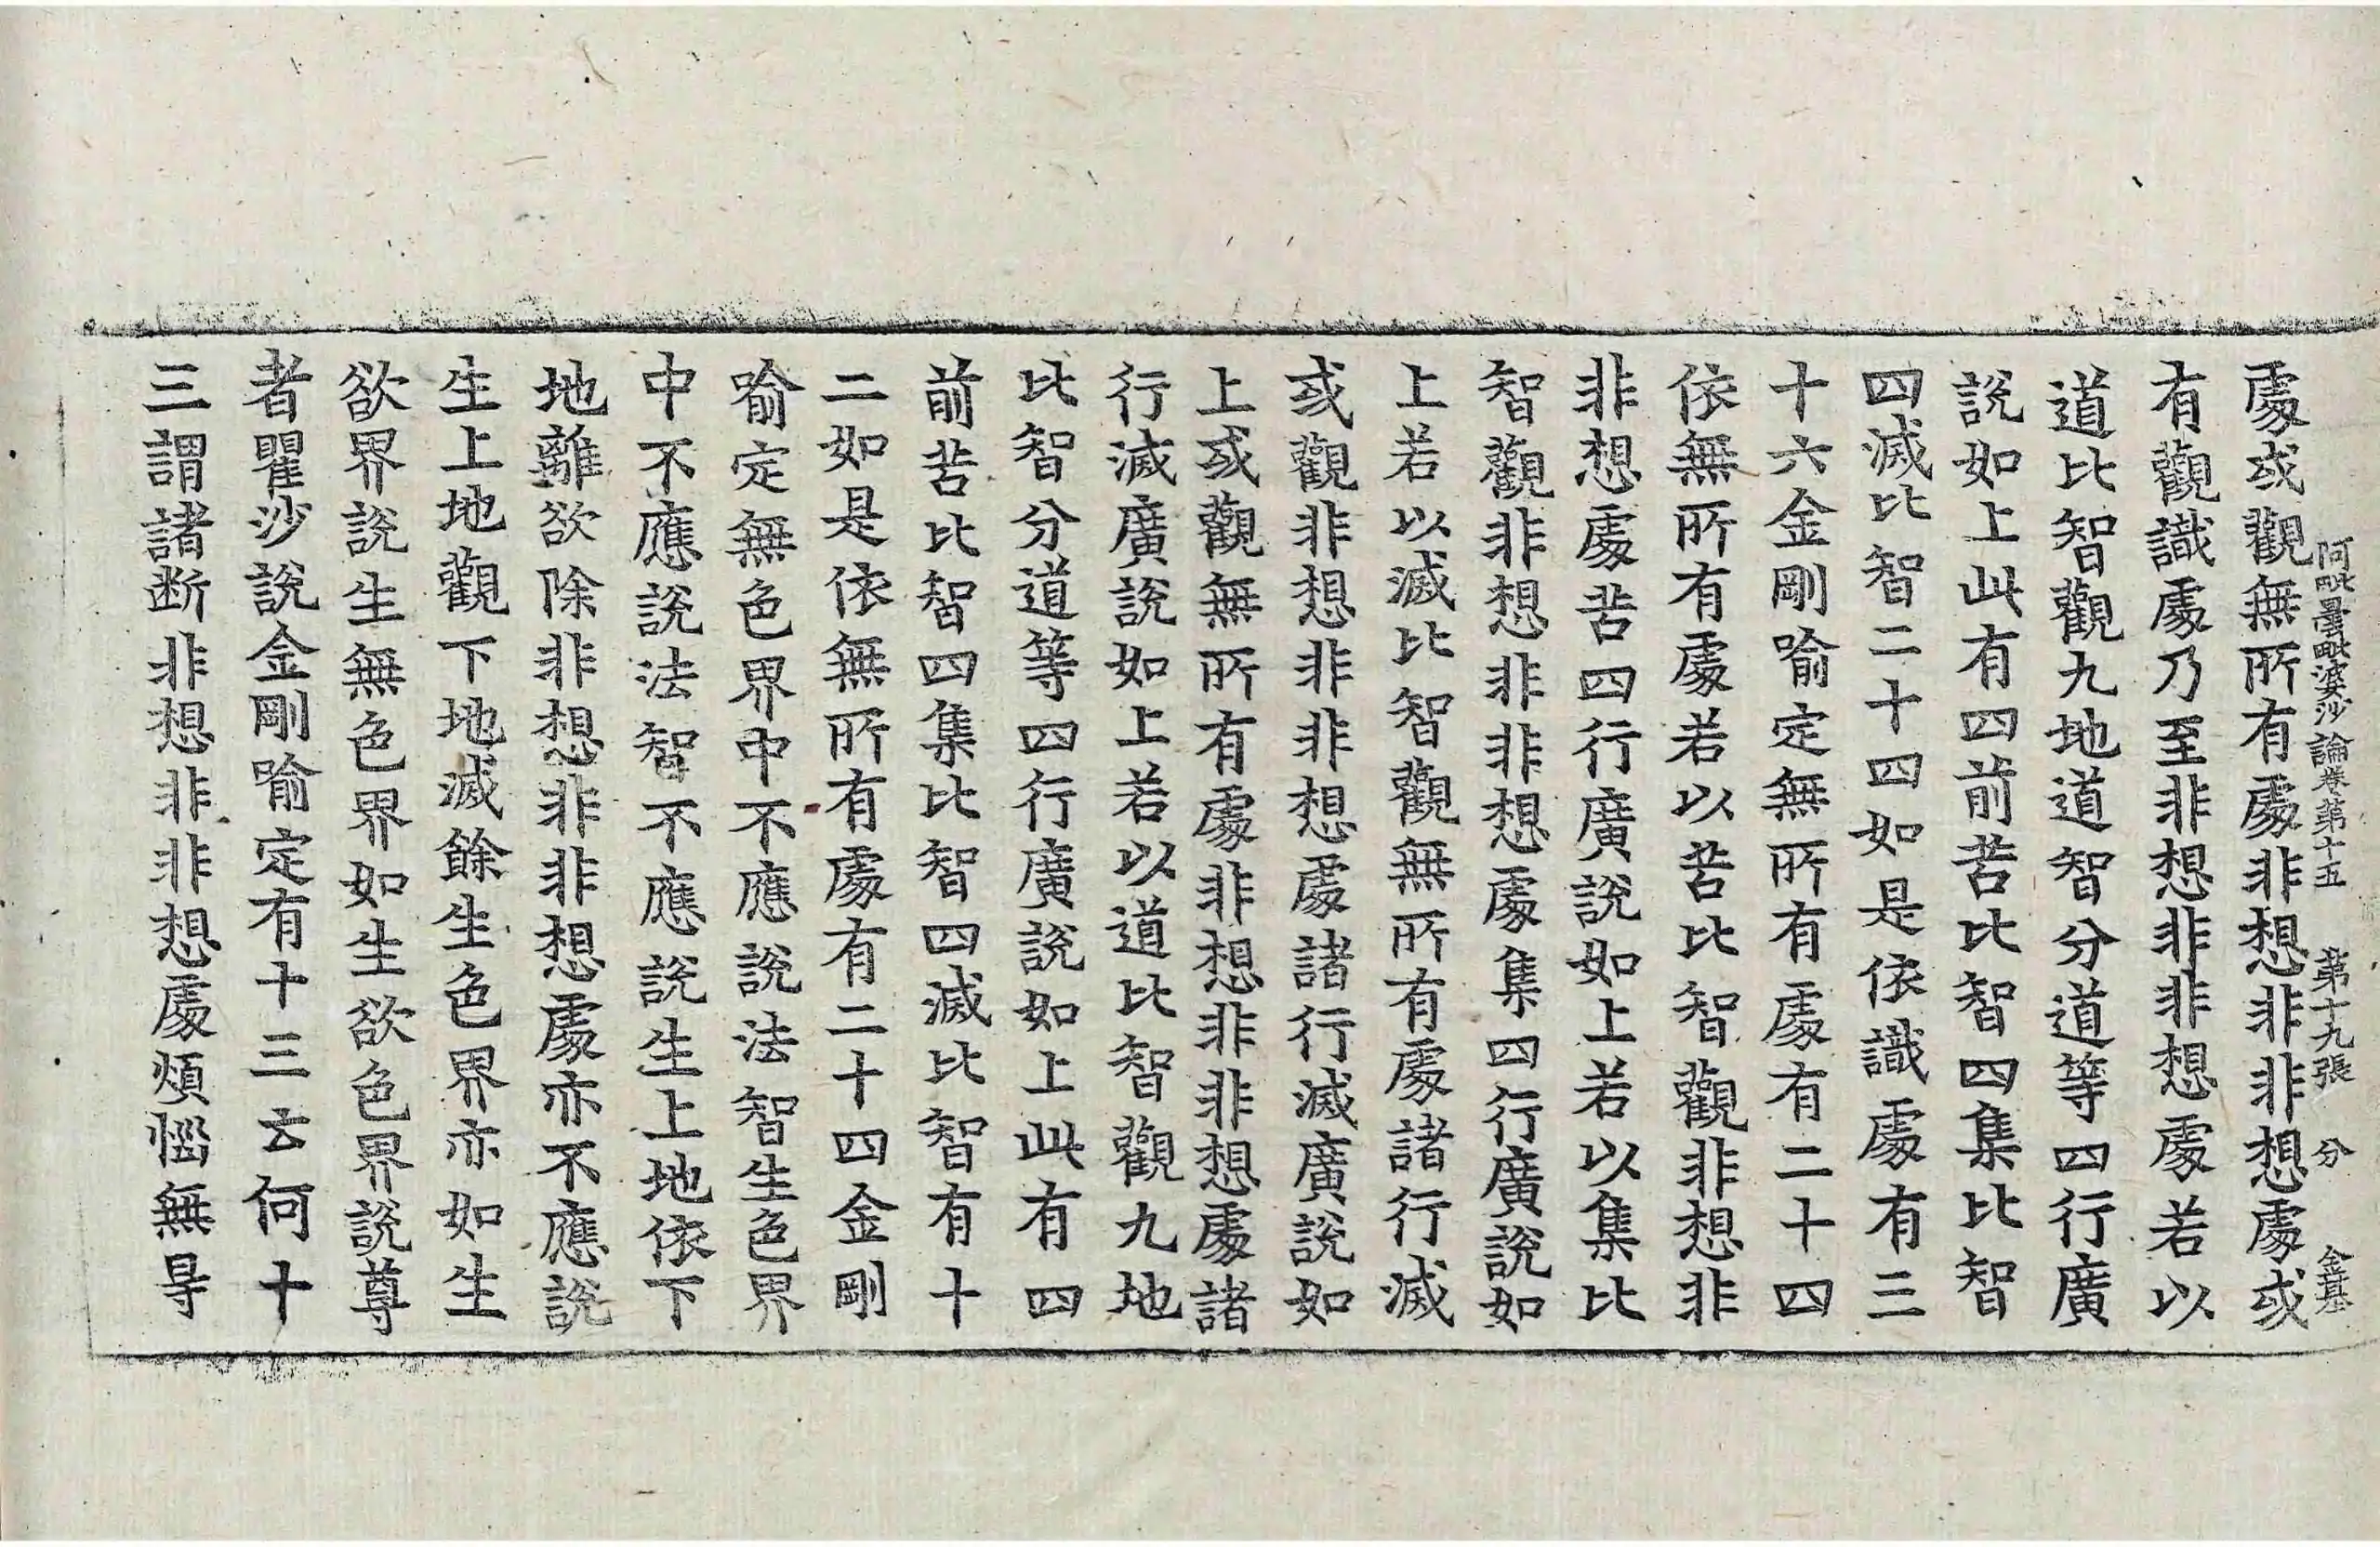 阿毗曇毗婆沙論卷第十五　第十九張　分　金甚
處或觀無所有處非想非非想處或
有觀識處乃至非想非非想處若以
道比智觀九地道智分道等四行廣
說如上此有四前苦比智四集比智
四滅比智二十四如是依識處有三
十六金剛喻定無所有處有二十四
依無所有處若以苦比智觀非想非
非想處苦四行廣說如上若以集比
智觀非想非非想處集四行廣說如
上若以滅比智觀無所有處諸行滅
或觀非想非非想處諸行滅廣說如
上或觀無所有處非想非非想處諸
行滅廣說如上若以道比智觀九地
比智分道等四行廣說如上此有四
前苦比智四集比智四滅比智有十
二如是依無所有處有二十四金剛
喻定無色界中不應說法智生色界
中不應說法智不應說生上地依下
地離欲除非想非非想處亦不應說
生上地觀下地滅餘生色界亦如生
欲界說生無色界如生欲色界說尊
者瞿沙說金剛喻定有十三云何十
三謂諸断非想非非想處煩惱無㝵